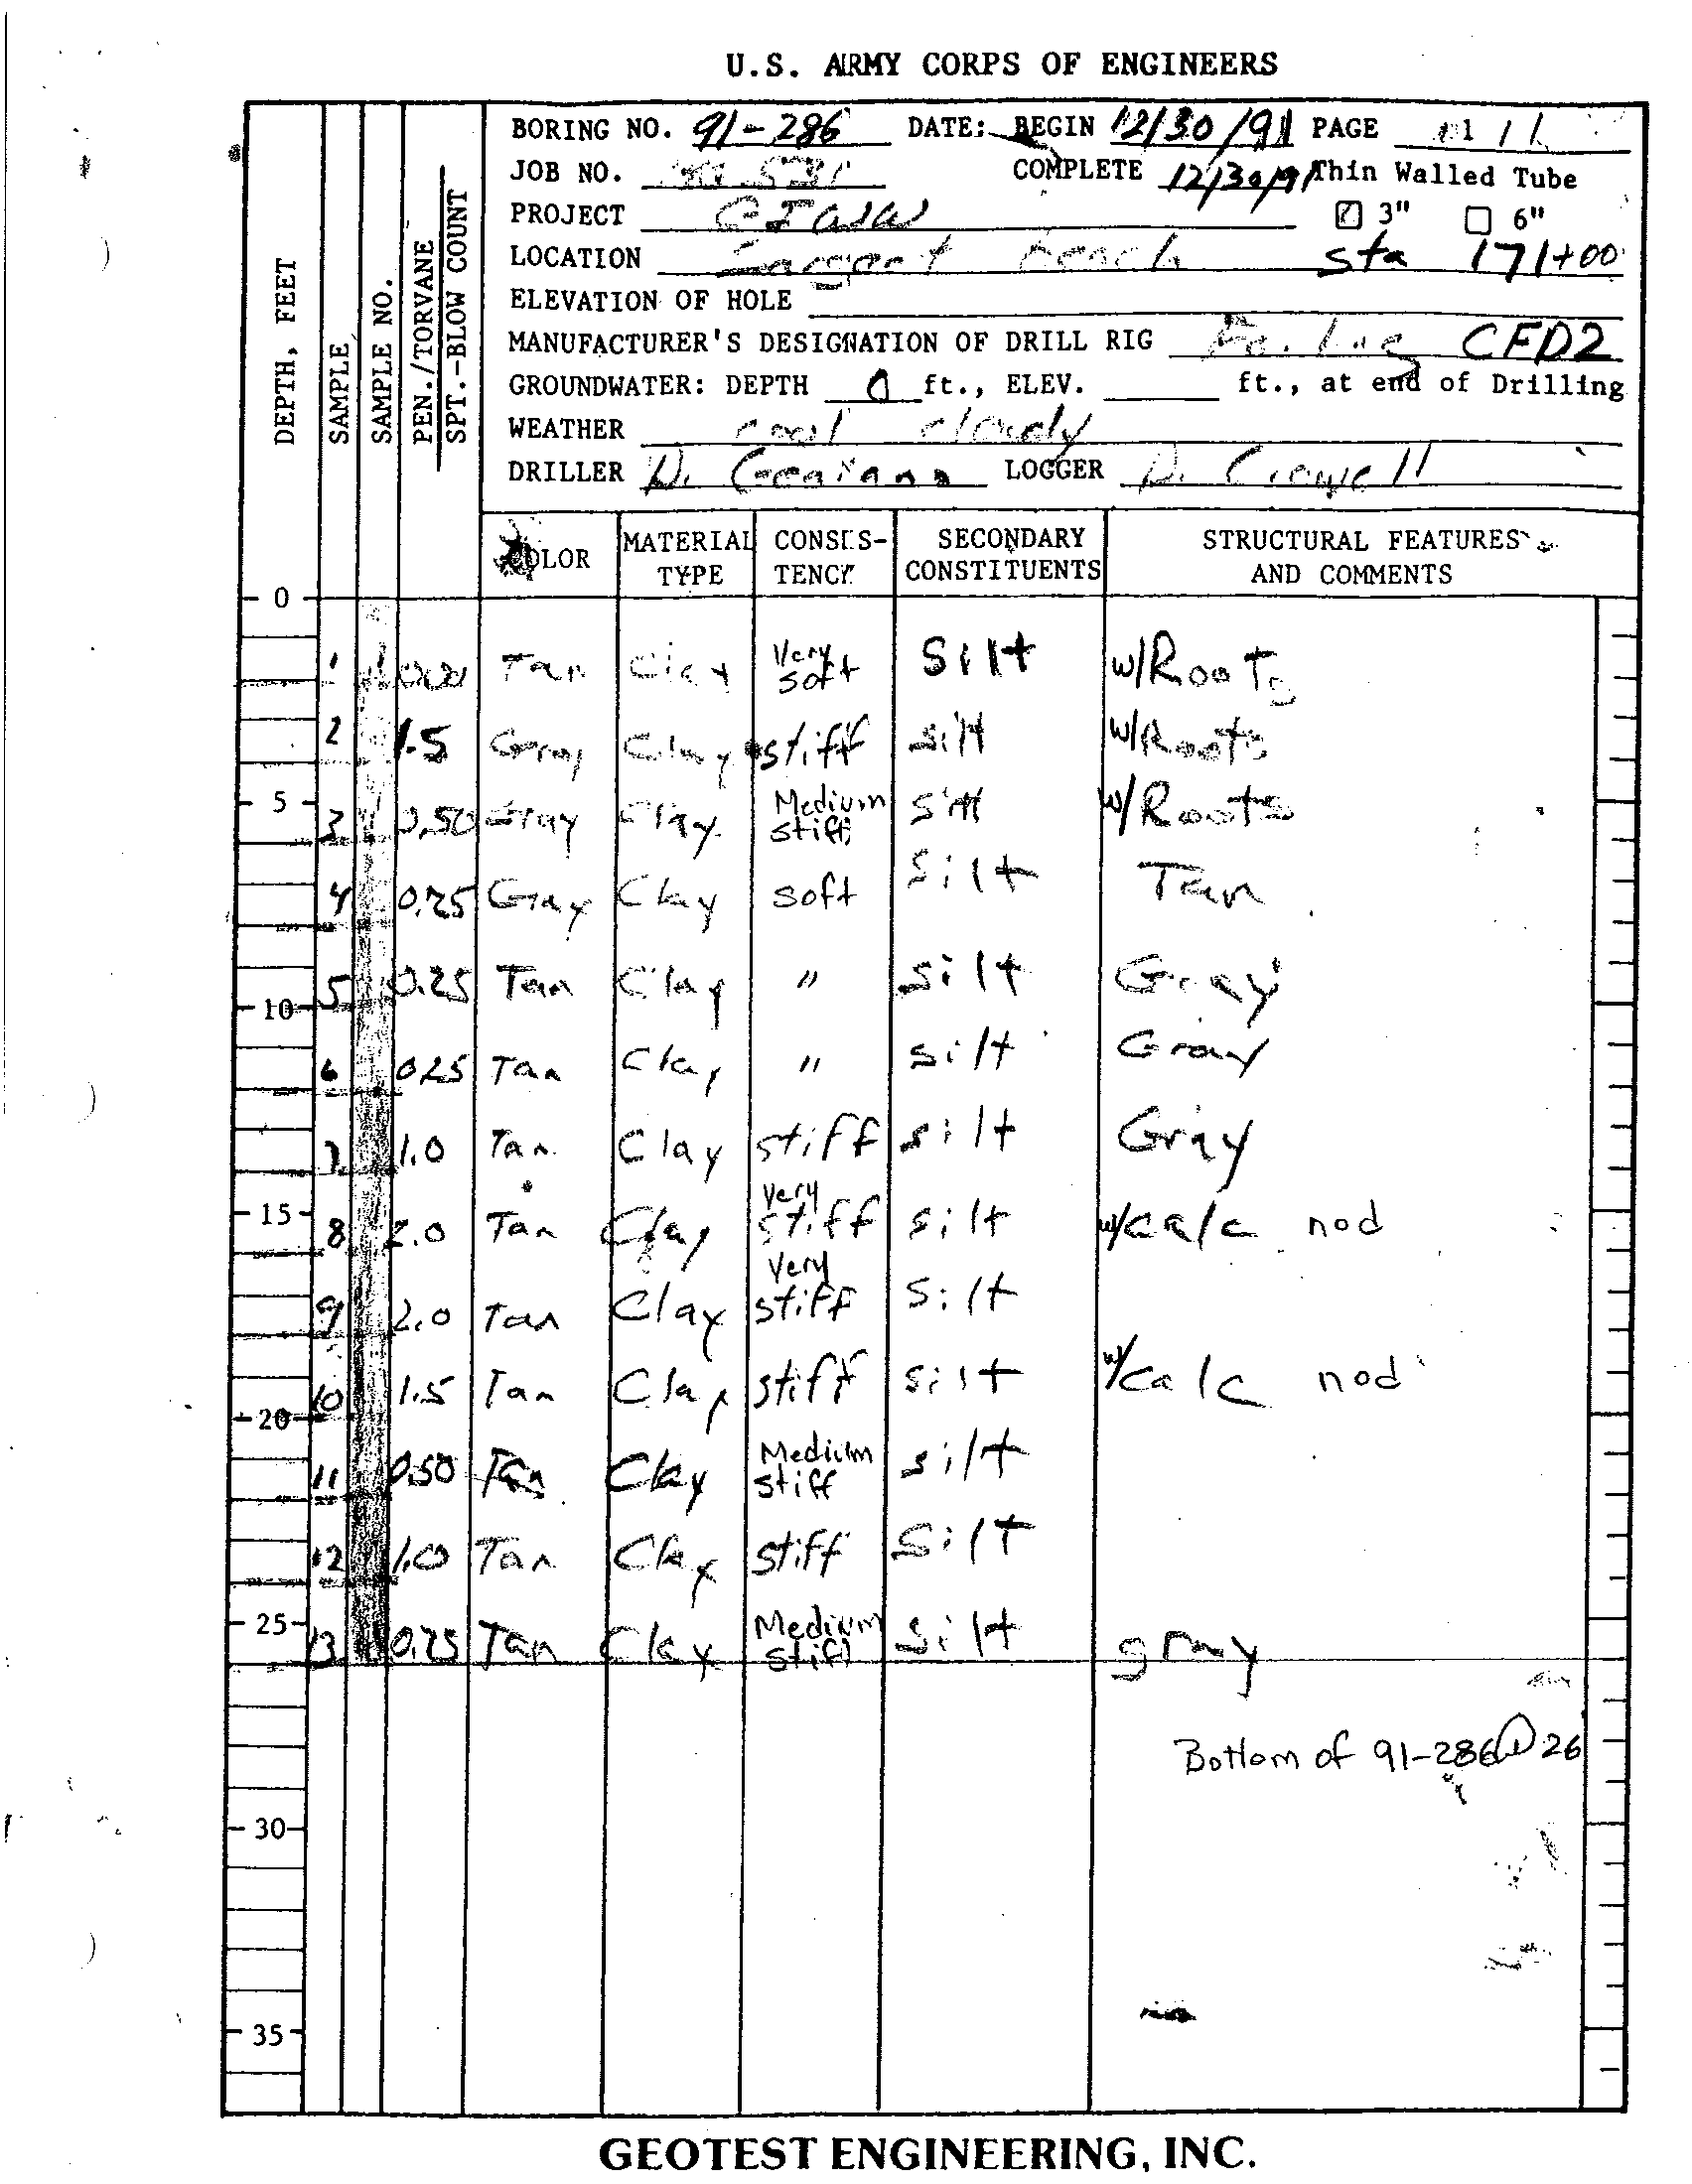 U.S. ARMY CORPS OF ENGINEERS
DEPTH, FEET
SAMPLE
SAMPLE NO.
PEN./TORVANE
SPT.-BLOW COUNT
BORING NO. 91-286 DATE: BEGIN 12/30/91 PAGE 1 / 1
JOB NO. COMPLETE 12/30/91 Thin Walled Tube
PROJECT GIWW 3" 6"
LOCATION Sargent Beach Sta 171+00
ELEVATION OF HOLE
MANUFACTURER'S DESIGNATION OF DRILL RIG Failing CFD2
GROUNDWATER: DEPTH 0 ft., ELEV. ft., at end of Drilling
WEATHER cool cloudy
DRILLER D. LOGGER D. Crowell
COLOR MATERIAL TYPE CONSIS-TENCY SECONDARY CONSTITUENTS STRUCTURAL FEATURES AND COMMENTS
0
1 Tan Clay Very soft Silt w/Roots
2 1.5 Gray Clay stiff silt w/Roots
5
3 0.50 Gray Clay Medium stiff silt w/Roots
4 0.25 Gray Clay soft silt Tan
5 0.25 Tan Clay " silt Gray
10
6 0.25 Tan Clay " silt Gray
7 1.0 Tan Clay stiff silt Gray
15
8 2.0 Tan Clay Very stiff silt w/calc nod
9 2.0 Tan Clay Very stiff silt
10 1.5 Tan Clay stiff silt w/calc nod
20
11 0.50 Tan Clay Medium stiff silt
12 1.0 Tan Clay stiff silt
25
13 0.75 Tan Clay Medium stiff silt gray
Bottom of 91-286 @ 26
30
35
GEOTEST ENGINEERING, INC.